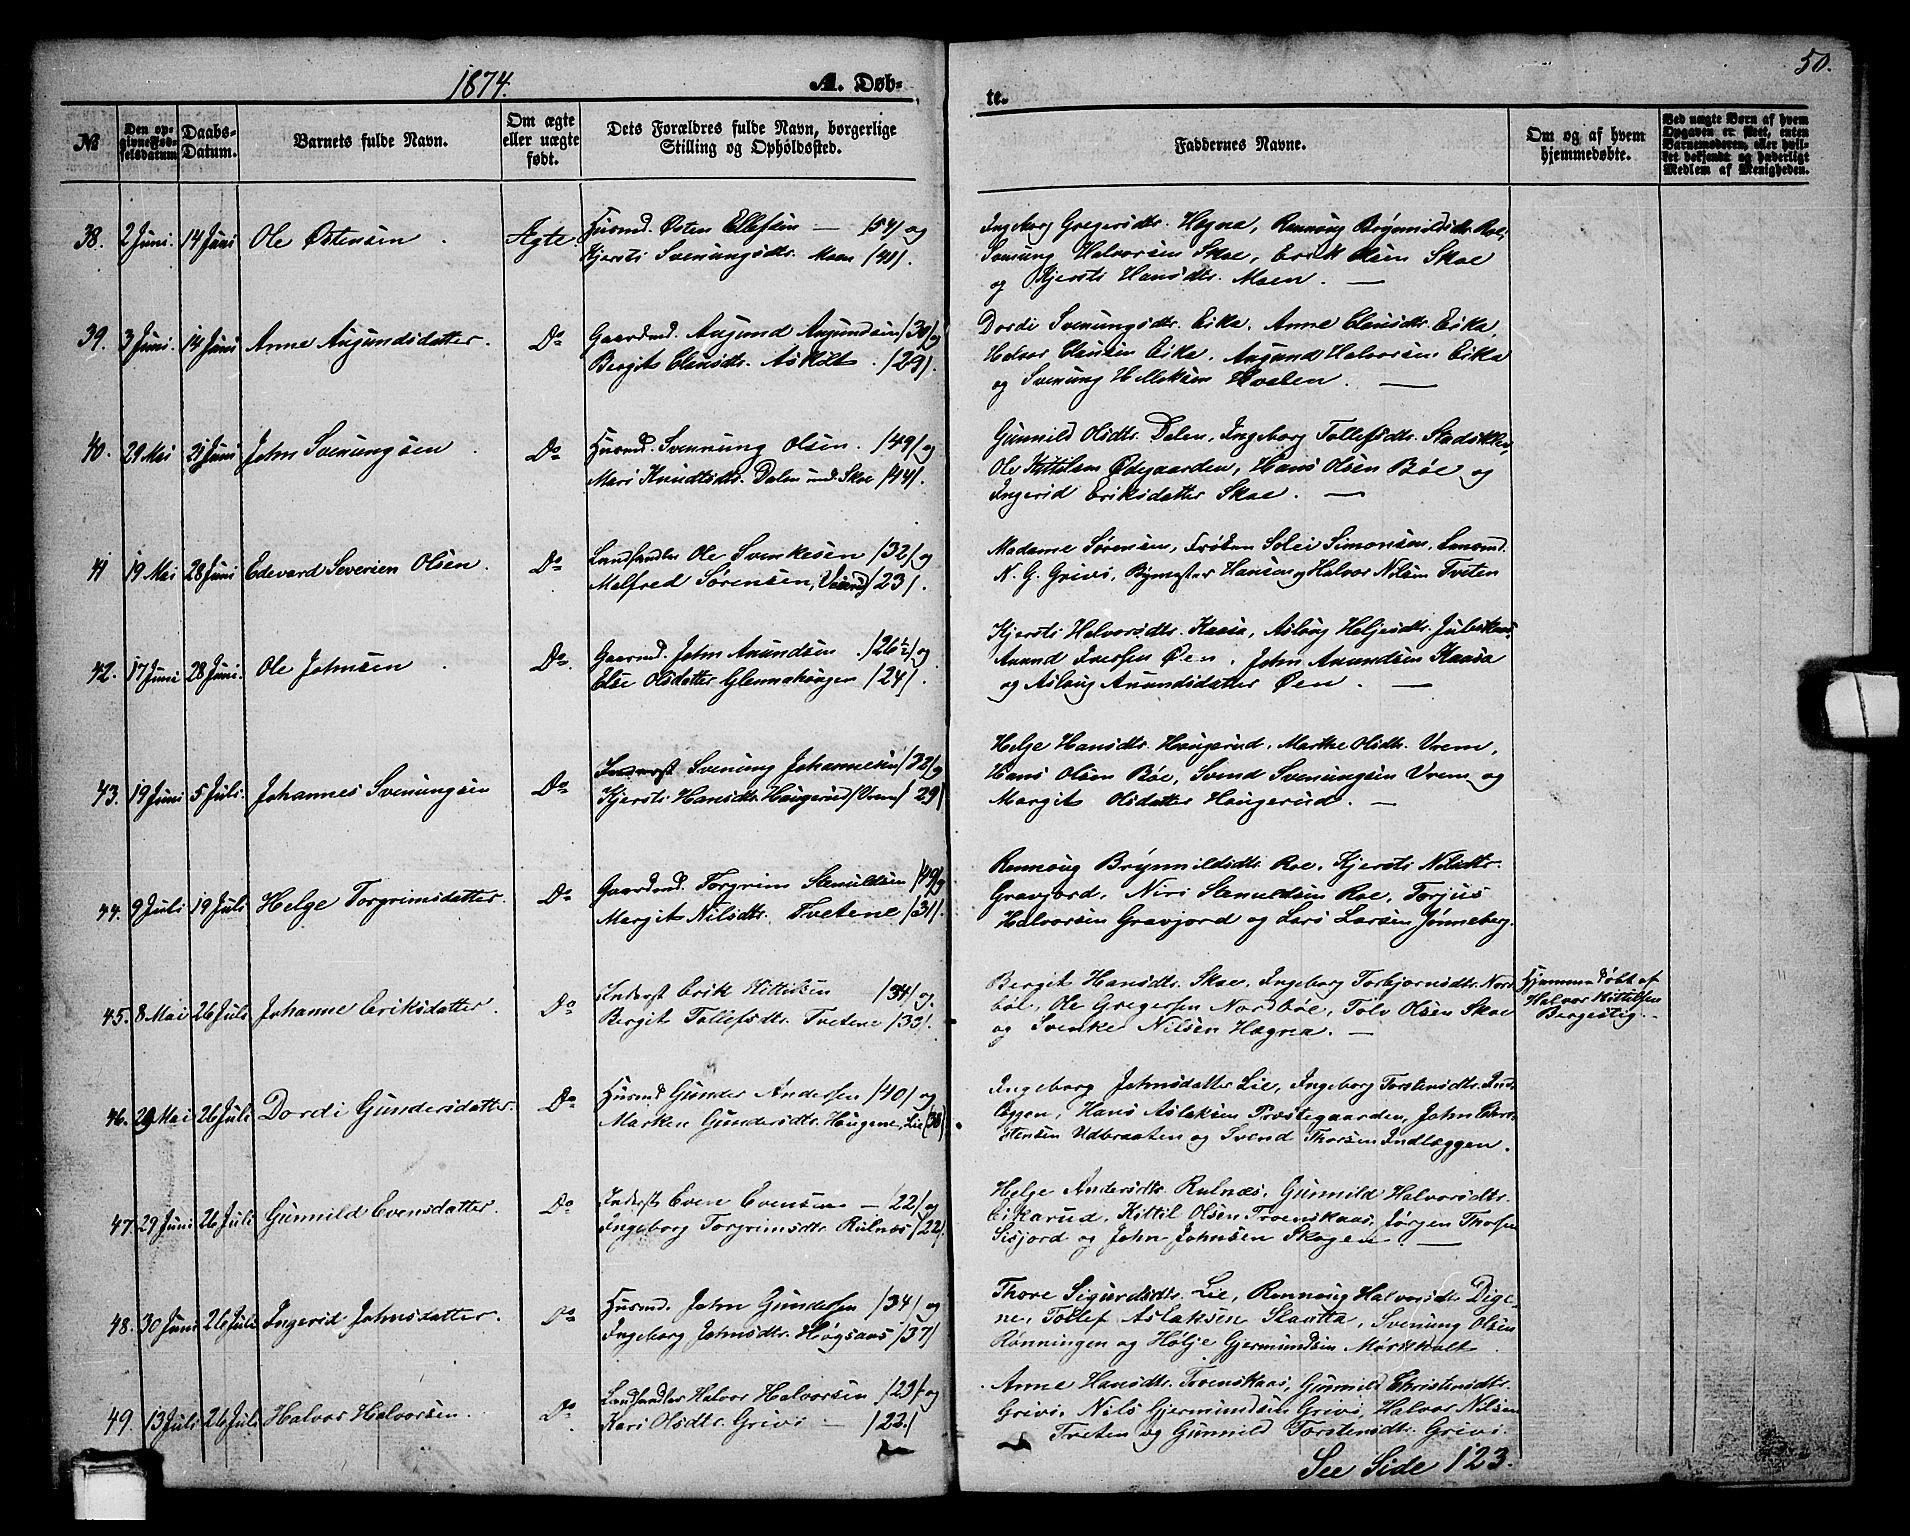 1874.
A. Døb-
te.
50.
№
Den op-
givne Fød-
selsdatum
Daabs-
Datum.
Barnets fulde Navn.
Om ægte
eller uægte
født.
Dets Forældres fulde Navn, borgerlige
Stilling og Opholdssted.
Faddernes Navne.
Om og af hvem
hjemmedøbte.
Ved uægte Børn af hvem
Opgaven er skeet, enten
Barnemoderen, eller hvil-
ket bekjendt og hæderligt
Medlem af Menigheden.
38. 2 Juni. 14 Juni Ole Østensen Ægte Husmd. Østen Ellefsen — /54/ og
Kjersti Svenungsdtr. Moen /41/.
Ingeborg Gregersdtr. Hægna, Rønnoug Brynnildsdtr. Roe,
Svenung Halvorsen Skoe, Erik Olsen Skoe
og Kjersti Hansdtr. Moen. —
39. 3 Juni. 14 Juni Anne Augundsdatter. Do Gaardmd. Augund Augundsen /30/ og
Bergit Clausdtr. Askilt. /29/.
Dordi Svenungsdtr. Eika, Anne Clausdtr. Eika,
Halvor Clausen Eika, Augund Halvorsen Eika
og Svenung Helleksen Hvalen. —
40. 29 Mai 21 Juni John Svenungsen Do Husmd. Svennung Olsen. /49/ og
Mari Knudtsdtr. Dalen und. Skoe /44/.
Gunnild Olsdtr. Dalen, Ingeborg Tollefsdtr. Stadskl.,
Ole Kittilsen Ødegaarden, Hans Olsen Bøe og
Ingerid Eriksdatter Skoe. —
41 19 Mai 28 Juni Edevard Severien Olsen. Do Landhandler Ole Svenkesen /32/ og
Malfred Sørensen, /23/.
Madame Sørensen, Frøken Solei Simonsen, Lensmd.
N. G. Grivi, Bymester Hansen og Halvor Nilsen Tveten
42. 17 Juni 28 Juni. Ole Johnsen Do. Gaardmd. John Anundsen /26½/ og
Else Olsdatter Glennahougen /24/.
Kjersti Halvorsdtr. Kaasa, Aslaug Heljesdtr. Juleskaas,
Anund Iversen Øen, John Anundsen Kaasa
og Aslaug Anundsdatter Øen. —
43. 19 Juni 5 Juli. Johannes Svenungsen Do Inderst Svenung Johannesen /32/ og
Kjersti Hansdtr. Haugerud /Vrem/ 29/
Helge Hansdtr. Haugerud, Marthe Olsdtr. Vrem,
Hans Olsen Bøe, Svend Svenungsen Vrem og
Margit Olsdatter Haugerud. —
44. 9 Juli 19 Juli Helge Torgrimsdatter. Do Gaardmd. Torgrim Stenuldsen /49/ og
Margit Nilsdtr. Tvetene /31/.
Rønnoug Brynnildsdtr. Roe, Kjersti Nilsdtr.
Gravjord, Niri Stenuldsen Roe, Torjus
Halvorsen Gravjord og Lars Larsen Jønneberg.
45. 8 Mai 26 Juli Johanne Eriksdatter Do Inderst Erik Kittilsen /34/ og
Bergit Tollefsdtr. Tvetene /33/.
Bergit Hansdtr. Skoe, Ingeborg Torbjornsdtr. Nord-
bøl, Ole Gregersen Nordbøe, Tolv Olsen Skoe
og Svenke Nilsen Hægna. —
Hjemmedøbt af
Halvor Kittilsen
Bergestig.
46. 20 Mai 26 Juli Dordi Gundersdatter. Do Husmd Gunder Andersen /40/ og
Marken Gundersdtr. Haugene, Lie /38/
Ingeborg Johnsdatter Lie, Ingeborg Torstensdtr. Indl-
æggen, Hans Aslaksen Præstegaarden, John Tor-
stensen Udbraaten og Svend Thorsen Indlæggen.
47. 29 Juni 26 Juli Gunnild Evensdatter. Do Inderst Even Evensen — /22/ og
Ingeborg Torgrimsdtr. Rulnæs /22/.
Helge Andersdtr. Rulnæs, Gunnild Halvorsdtr.
Eikarud, Kittil Olsen Tvenskaas, Jørgen Thorsen
Sisjord og John Johnsen Skogen —
48. 30 Juni 26 Juli Ingerid Johnsdatter. Do Husmd. John Gundersen /34/ og
Ingeborg Johnsdtr. Høgsaas /37/
Thore Sigurdsdtr. Lie, Rønnoug Halvorsdtr. Dige-
ne, Tollef Aslaksen Slaatta, Svenung Olsen
Rønningen og Hølje Gjermundsen Mørkholt
49. 13 Juli 26 Juli Halvor Halvorsen. Do Landhandler Halvor Halvorsen /23/ og
Kari Olsdtr. Grivi — /22./
Anne Hansdtr. Tvenskaas, Gunnild Christensdtr.
Grivi, Nils Gjermundsen Grivi, Halvor Nilsen
Tveten og Gunnild Torstensdtr. Grivi.
See Side 123.